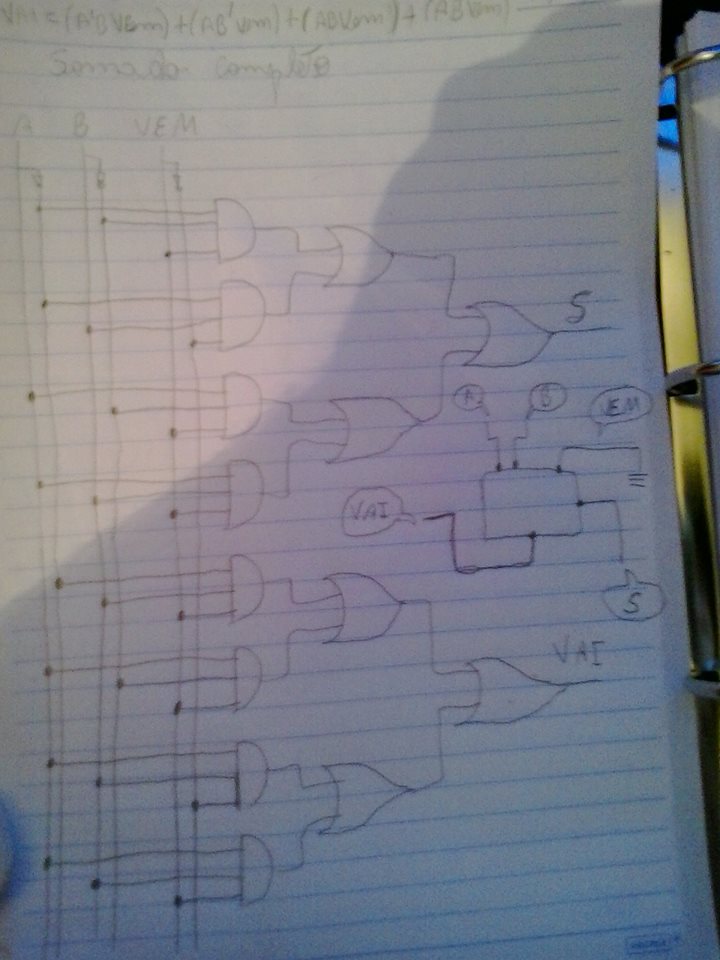 VAI = (A'BVem) + (AB'Vem) + (ABVem') + (ABVem)
Somador completo
A B VEM
S
A B VEM
VAI
S
VAI